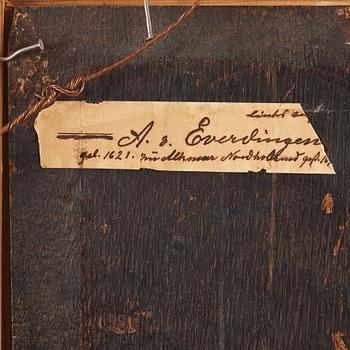 links
A. v. Everdingen
geb. 1621. zu Alkmaar Nordholland gest. 16